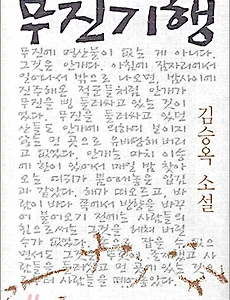 무진기행
무진에 명산물이 없는 게 아니다.
그것은 안개다. 아침에 잠자리에서
일어나서 밖으로 나오면, 밤사이에
진주해온 적군들처럼 안개가
무진을 삥 둘러싸고 있는 것이
었다. 무진을 둘러싸고 있던
산들도 안개에 의하여 보이지
않는 먼 곳으로 유배당해 버리
고 없었다. 안개는 마치 이승
에 한이 있어서 매일 밤 찾아
오는 여귀가 뿜어내놓은 입김
과 같았다. 해가 떠오르고, 바
람이 바다 쪽에서 방향을 바꾸
어 불어오기 전에는 사람들의
힘으로써는 그것을 헤쳐 버릴
수가 없었다.
잡을 수 없
으면서도
그것은
사람들을
먼 곳에 있는 것
김승옥 소설